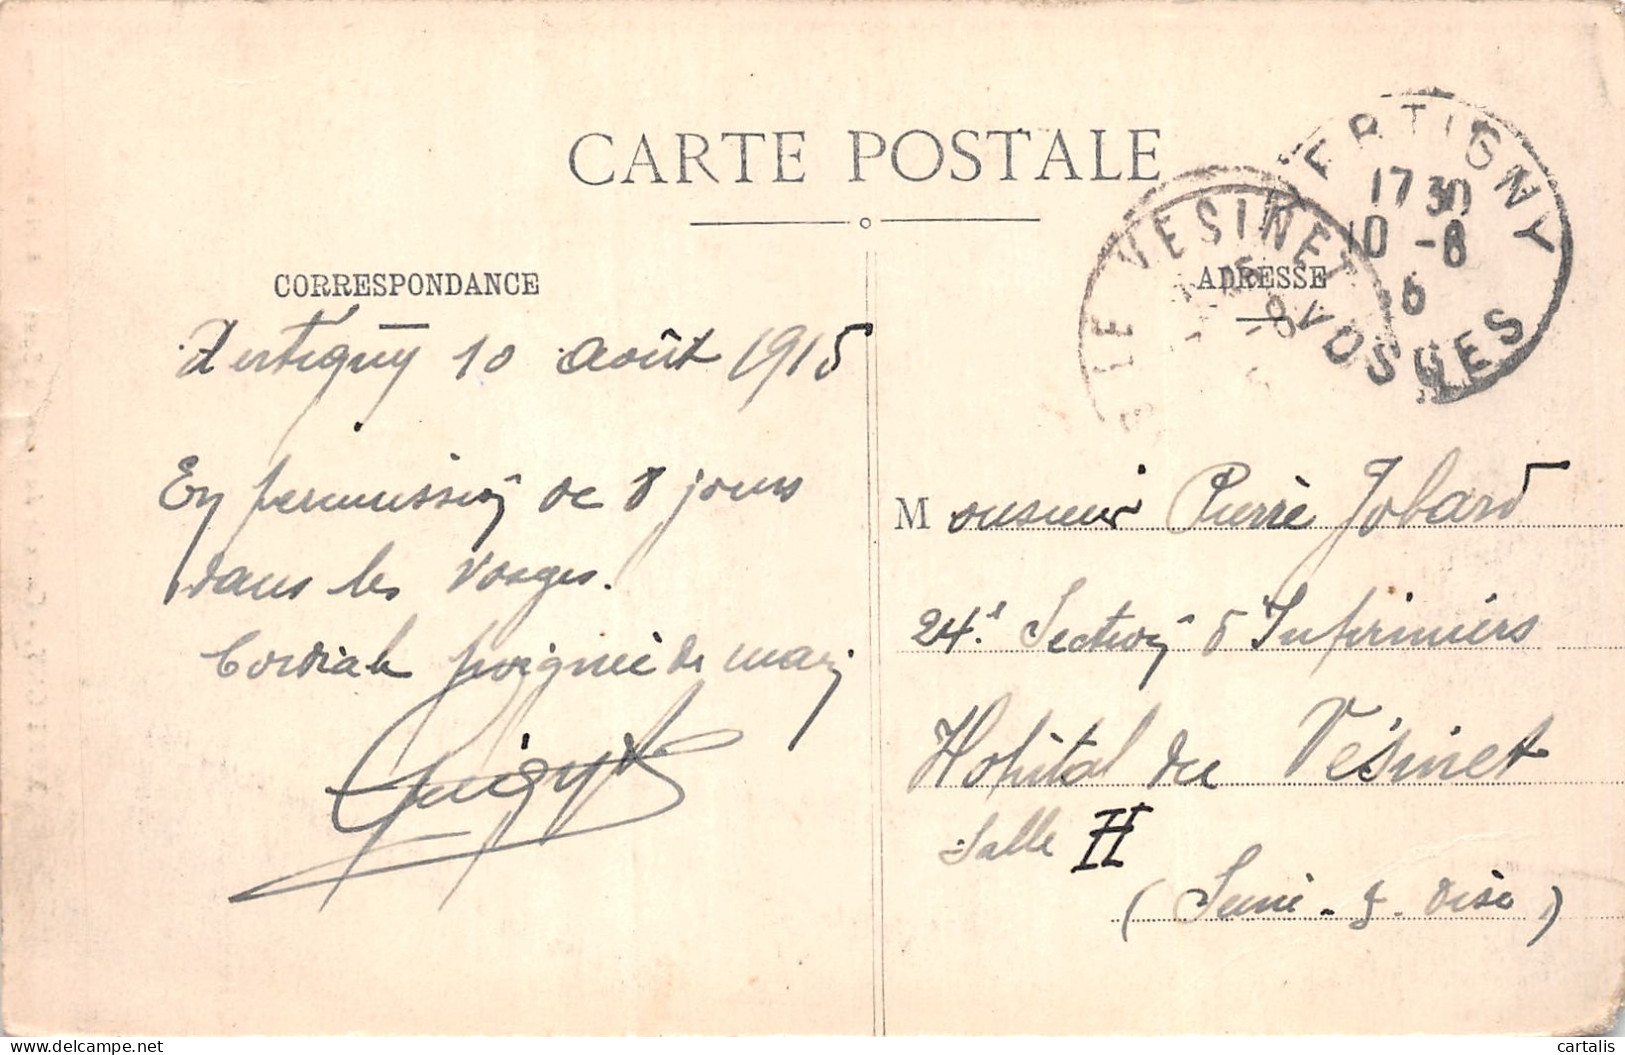 CARTE POSTALE
CORRESPONDANCE
Xertigny 10 août 1915
En permission de 8 jours
dans les Vosges.
Cordiale poignée de main
ADRESSE
Monsieur Pierre Jobard
24e Section d'Infirmiers
Hôpital du Vésinet
Salle II
(Seine-&-Oise)
XERTIGNY
17 30
10 -8
VOSGES
LE VESINET
-8
cartalis